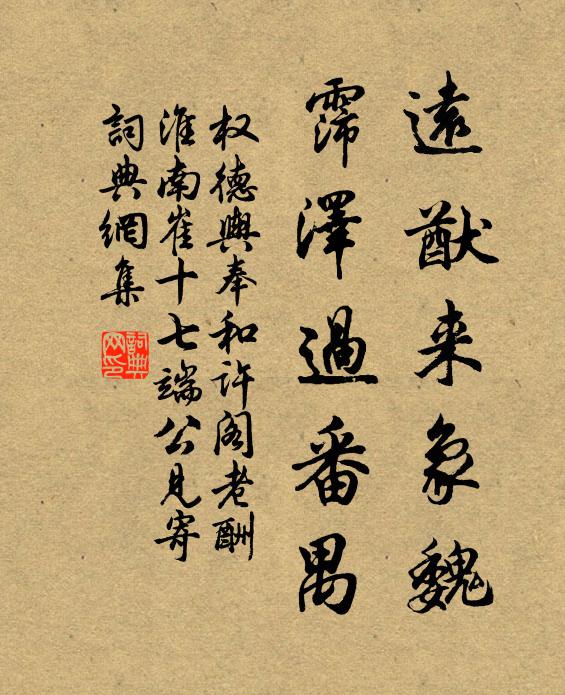 遠猷来象魏
霈澤過番禺
权德輿奉和許阁老酬
淮南崔十七端公見寄
詞典網集
詞典网印